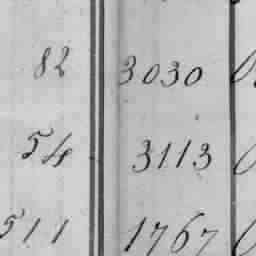 82 3030
54 3113
511 1767